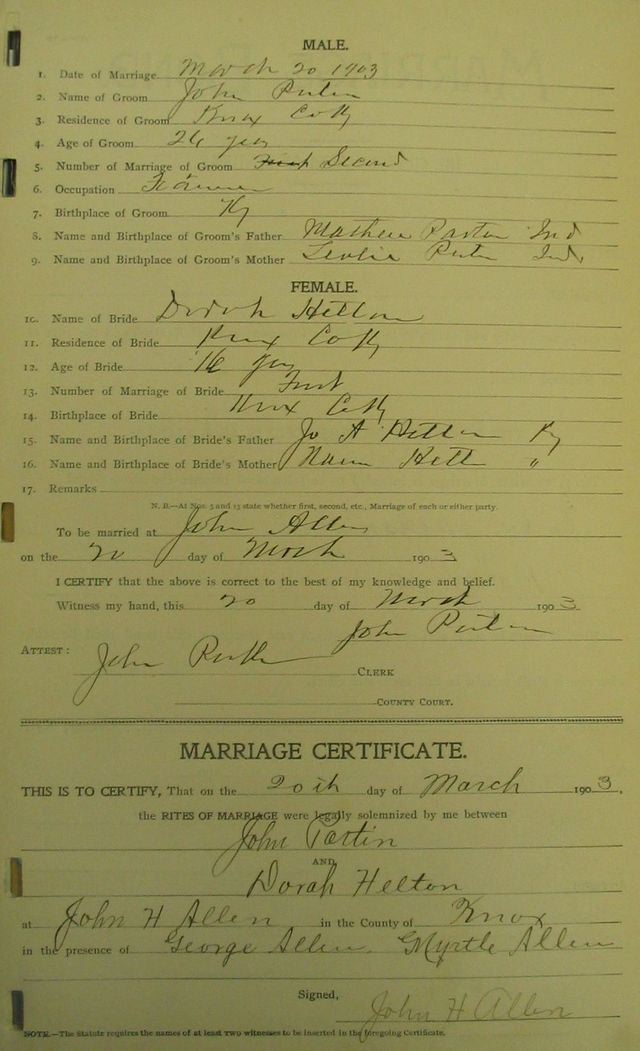 MALE.
1. Date of Marriage March 20 1903
2. Name of Groom John
3. Residence of Groom Knox Co Ky
4. Age of Groom yrs
5. Number of Marriage of Groom First Second
6. Occupation Farmer
7. Birthplace of Groom Ky
8. Name and Birthplace of Groom's Father Ind
9. Name and Birthplace of Groom's Mother Ind,
FEMALE.
10. Name of Bride Dorah Helton
11. Residence of Bride Knox Co Ky
12. Age of Bride yrs
13. Number of Marriage of Bride First
14. Birthplace of Bride Knox Co Ky
15. Name and Birthplace of Bride's Father Jo A Helton Ky
16. Name and Birthplace of Bride's Mother "
17. Remarks
N. B.—At Nos. 5 and 13 state whether first, second, etc., Marriage of each or either party.
To be married at John Allen
on the 20 day of March 1903
I CERTIFY that the above is correct to the best of my knowledge and belief.
Witness my hand, this 20 day of March 1903
John
ATTEST: John CLERK
COUNTY COURT.
MARRIAGE CERTIFICATE.
THIS IS TO CERTIFY, That on the 20th day of March 1903,
the RITES OF MARRIAGE were legally solemnized by me between
John Partin
AND
Dorah Helton
at John H Allen in the County of Knox
in the presence of George Allen, Myrtle Allen
Signed,
John H Allen
NOTE.—The Statute requires the names of at least two witnesses to be inserted in the foregoing Certificate.